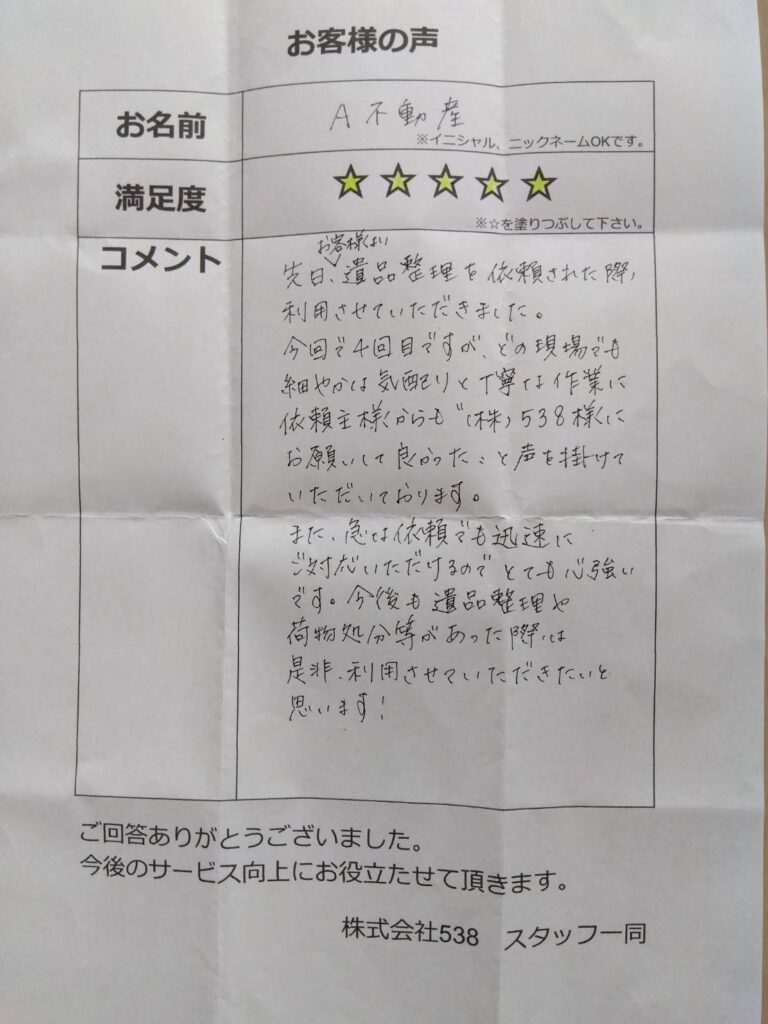 お客様の声
お名前
A 不動産
※イニシャル、ニックネームOKです。
満足度
★★★★★
※☆を塗りつぶして下さい。
コメント
お客様より
先日、遺品整理を依頼された際、
利用させていただきました。
今回で4回目ですが、どの現場でも
細やかな気配りと丁寧な作業に
依頼主様からも“(株)538様に
お願いして良かった〟と声を掛けて
いただいております。
また、急な依頼でも迅速に
ご対応いただけるのでとても心強い
です。今後も遺品整理や
荷物処分等があった際は
是非、利用させていただきたいと
思います!
ご回答ありがとうございました。
今後のサービス向上にお役立たせて頂きます。
株式会社538 スタッフ一同